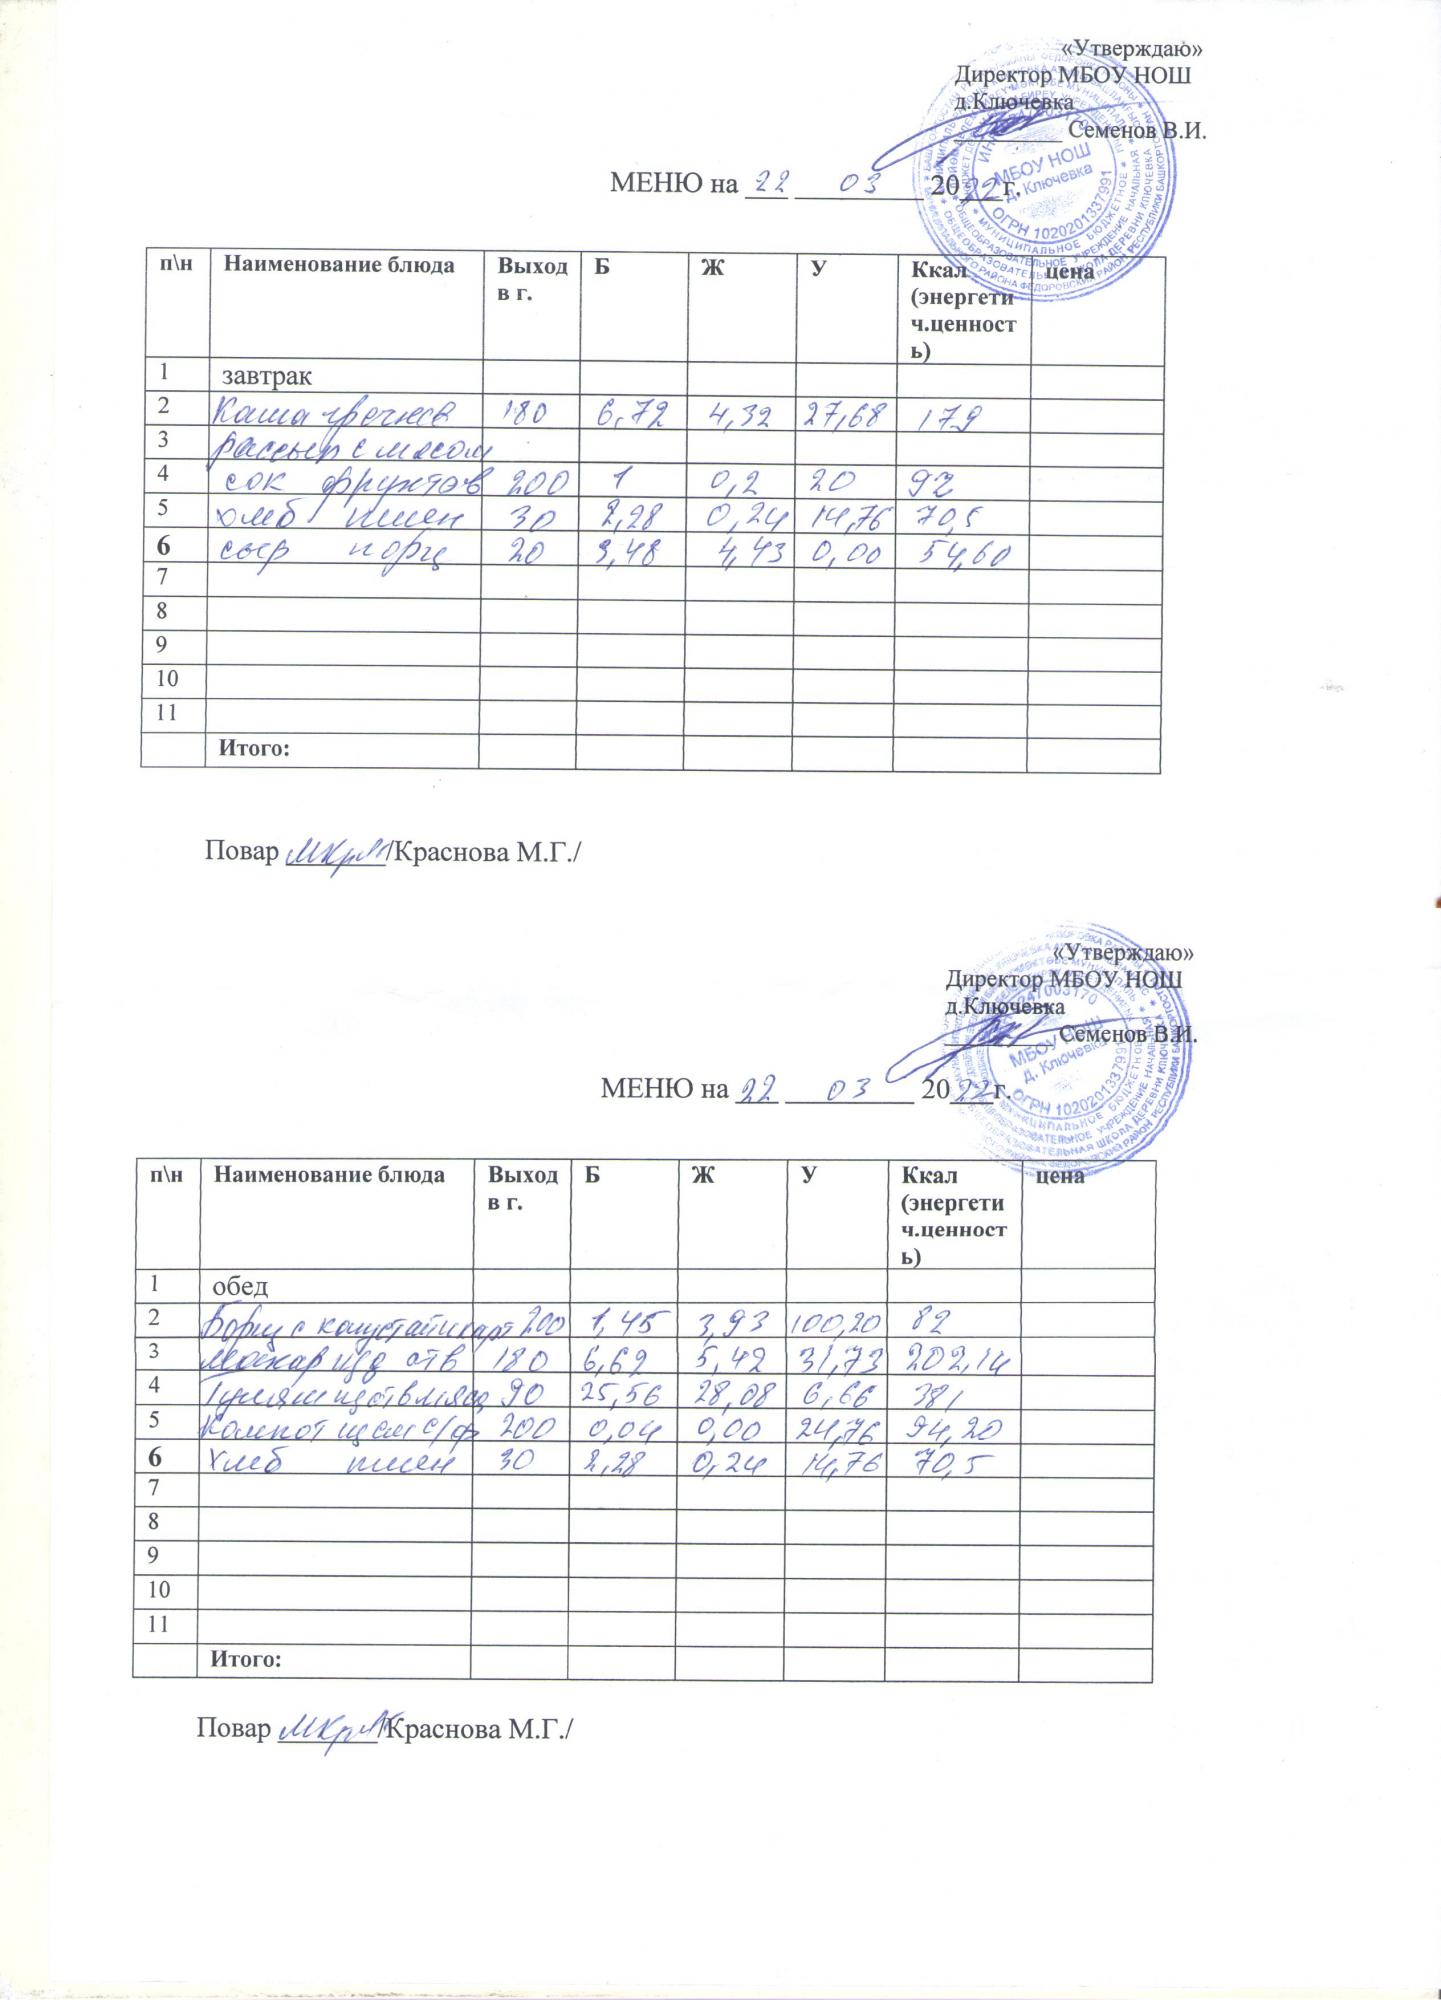 «Утверждаю»
Директор МБОУ НОШ
д.Ключевка
Семенов В.И.
МЕНЮ на 22 03 2022г.
МБОУ НОШ
д. Ключевка
ОГРН 1020201337991
п\н Наименование блюда Выход в г. Б Ж У Ккал (энергетич.ценность) цена
1 завтрак
2 Каша гречнев 180 6,72 4,32 27,68 179
3 рассып с мясом
4 сок фруктов 200 1 0,2 20 92
5 хлеб пшен 30 2,28 0,24 14,76 70,5
6 сыр порц 20 3,48 4,43 0,00 54,60
7
8
9
10
11
Итого:
Повар /Краснова М.Г./
«Утверждаю»
Директор МБОУ НОШ
д.Ключевка
Семенов В.И.
МЕНЮ на 22 03 2022г.
МБОУ НОШ
д. Ключевка
ОГРН 1020201337991
п\н Наименование блюда Выход в г. Б Ж У Ккал (энергетич.ценность) цена
1 обед
2 Борщ с капустайикарт 200 1,45 3,93 100,20 82
3 отв 180 6,62 5,42 31,73 202,14
4 90 25,56 28,08 6,66 381
5 Компот с/ф 200 0,04 0,00 24,76 94,20
6 хлеб пшен 30 2,28 0,24 14,76 70,5
7
8
9
10
11
Итого:
Повар /Краснова М.Г./